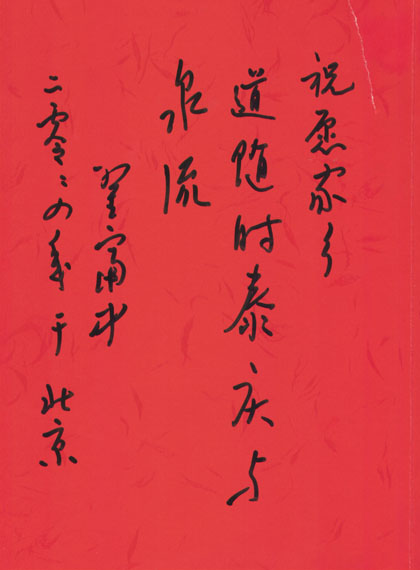 祝愿家乡
道随时泰庆与
泉流
富
二零々四年于北京